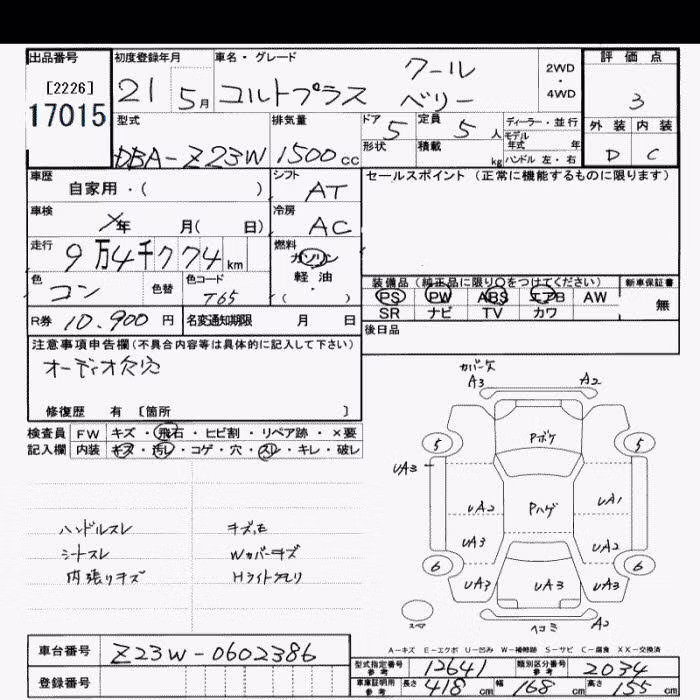 出品番号 初度登録年月 車名・グレード 評価点
[2226] 21 5月 コルトプラス クールベリー 2WD・4WD 3
17015 外装 内装
型式 排気量 ドア 5 定員 5人 ディーラー・並行
モデル年式 年
DBA-Z23W 1500cc 形状 積載 kg ハンドル 左・右 D C
車歴 シフト セールスポイント(正常に機能するものに限ります)
自家用・( ) AT
車検 冷房
年 月( 日) AC
走行 燃料
9万4千774km ガソリン
色 色替 色コード 軽・油
コン T65 ・( )
装備品(純正品に限り○をつけてください) 新車保証書
PS PW ABS エアB AW 無
SR ナビ TV カワ
R券 10.900円 名変通知期限 月 日
後日品
注意事項申告欄(不具合内容等は具体的に記入して下さい)
オーディオ欠穴
修復歴 有 〔箇所 〕
検査員 FW キズ・飛石・ヒビ割・リペア跡・×要
記入欄 内装 キズ・汚レ・コゲ・穴・スレ・キレ・破レ
ハンドルスレ キズ,E
シートスレ Wカバーキズ
内張りキズ Hライトクモリ
カバー欠
A3 A2
Pボケ
5 5
UA3
UA2 Pハゲ UA1
UA3 UA2
6 6
UA3 UA3 UA3
スペア ヘコミ A2
A-キズ E-エクボ U-凹み W-補修跡 S-サビ C-腐食 XX-交換済
車台番号 Z23W-0602386
型式指定番号 参考 12641 類別区分番号 参考 2034
登録番号
車庫証明用 参考 長さ 418cm 幅 168cm 高さ 155cm